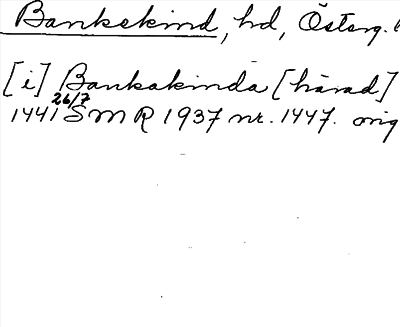 Bankekind, hd, Österg. 
[i] Bankakinda [härad]
1441 26/7 SMR 1937 nr. 1447. orig